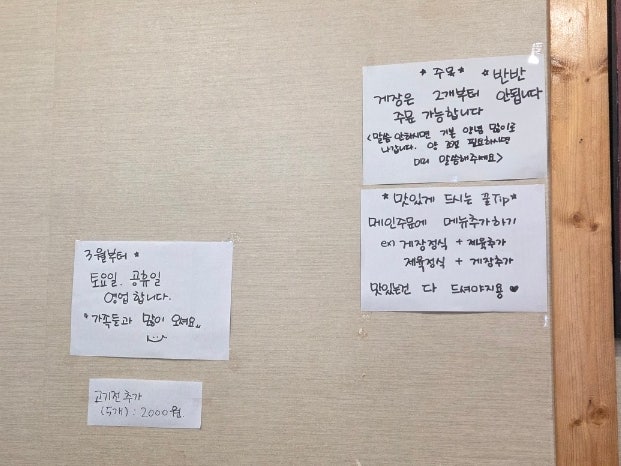 *주목*
*반반
게장은 2개부터 안됩니다
주문 가능합니다
<말씀 안하시면 기본 양념 많이로
나갑니다. 양 조절 필요하시면
미리 말씀해주세요>
*맛있게 드시는 꿀Tip*
메인주문에 메뉴추가하기
ex) 게장정식 + 제육추가
제육정식 + 게장추가
맛있는건 다 드셔야지용 ♥
3월부터 *
토요일. 공휴일
영업합니다.
"가족들과 많이 오셔요"
고기전 추가
(5개) : 2000원.